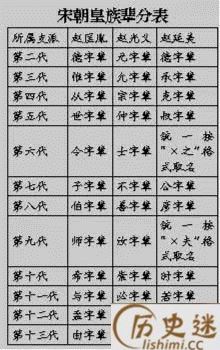 宋朝皇族辈分表
所属支派 赵匡胤 赵光义 赵廷美
第二代 德字辈 元字辈 德字辈
第三代 惟字辈 允字辈 承字辈
第四代 从字辈 宗字辈 克字辈
第五代 世字辈 仲字辈 叔字辈
第六代 令字辈 士字辈 统一按“×之”格式取名
第七代 子字辈 不字辈 公字辈
第八代 伯字辈 善字辈 彦字辈
第九代 师字辈 汝字辈 统一按“×夫”格式取名
第十代 希字辈 崇字辈 时字辈
第十一代 与字辈 必字辈 若字辈
第十二代 孟字辈
第十三代 由字辈
历史迷
lishimi.cc